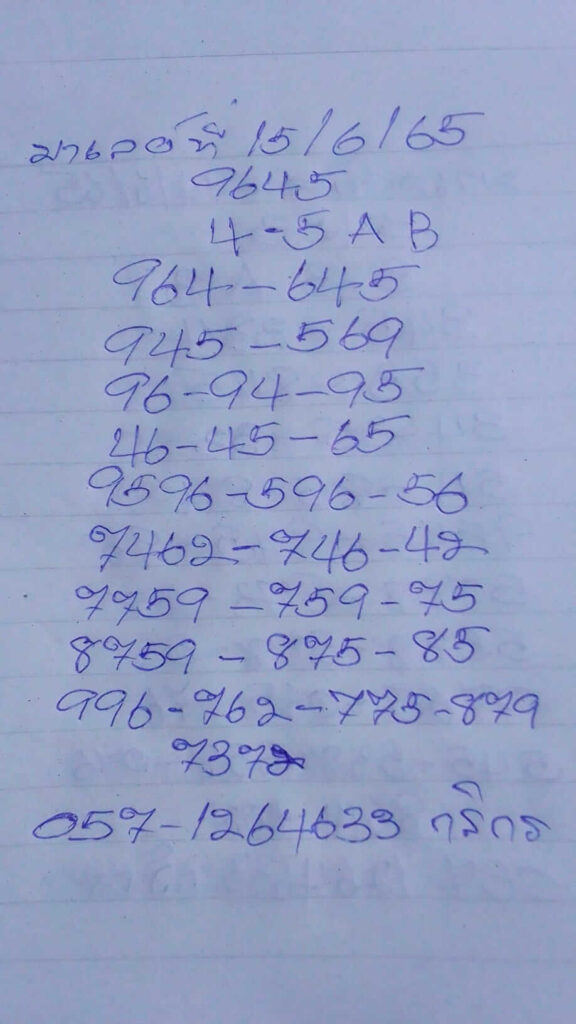 มาเลย์ที่ 15/6/65
9645
4-5 A B
964-645
945-569
96-94-95
46-45-65
9596-596-56
7462-746-42
7759-759-75
8759-875-85
996-762-775-879
7372
057-1264633 กสิกร